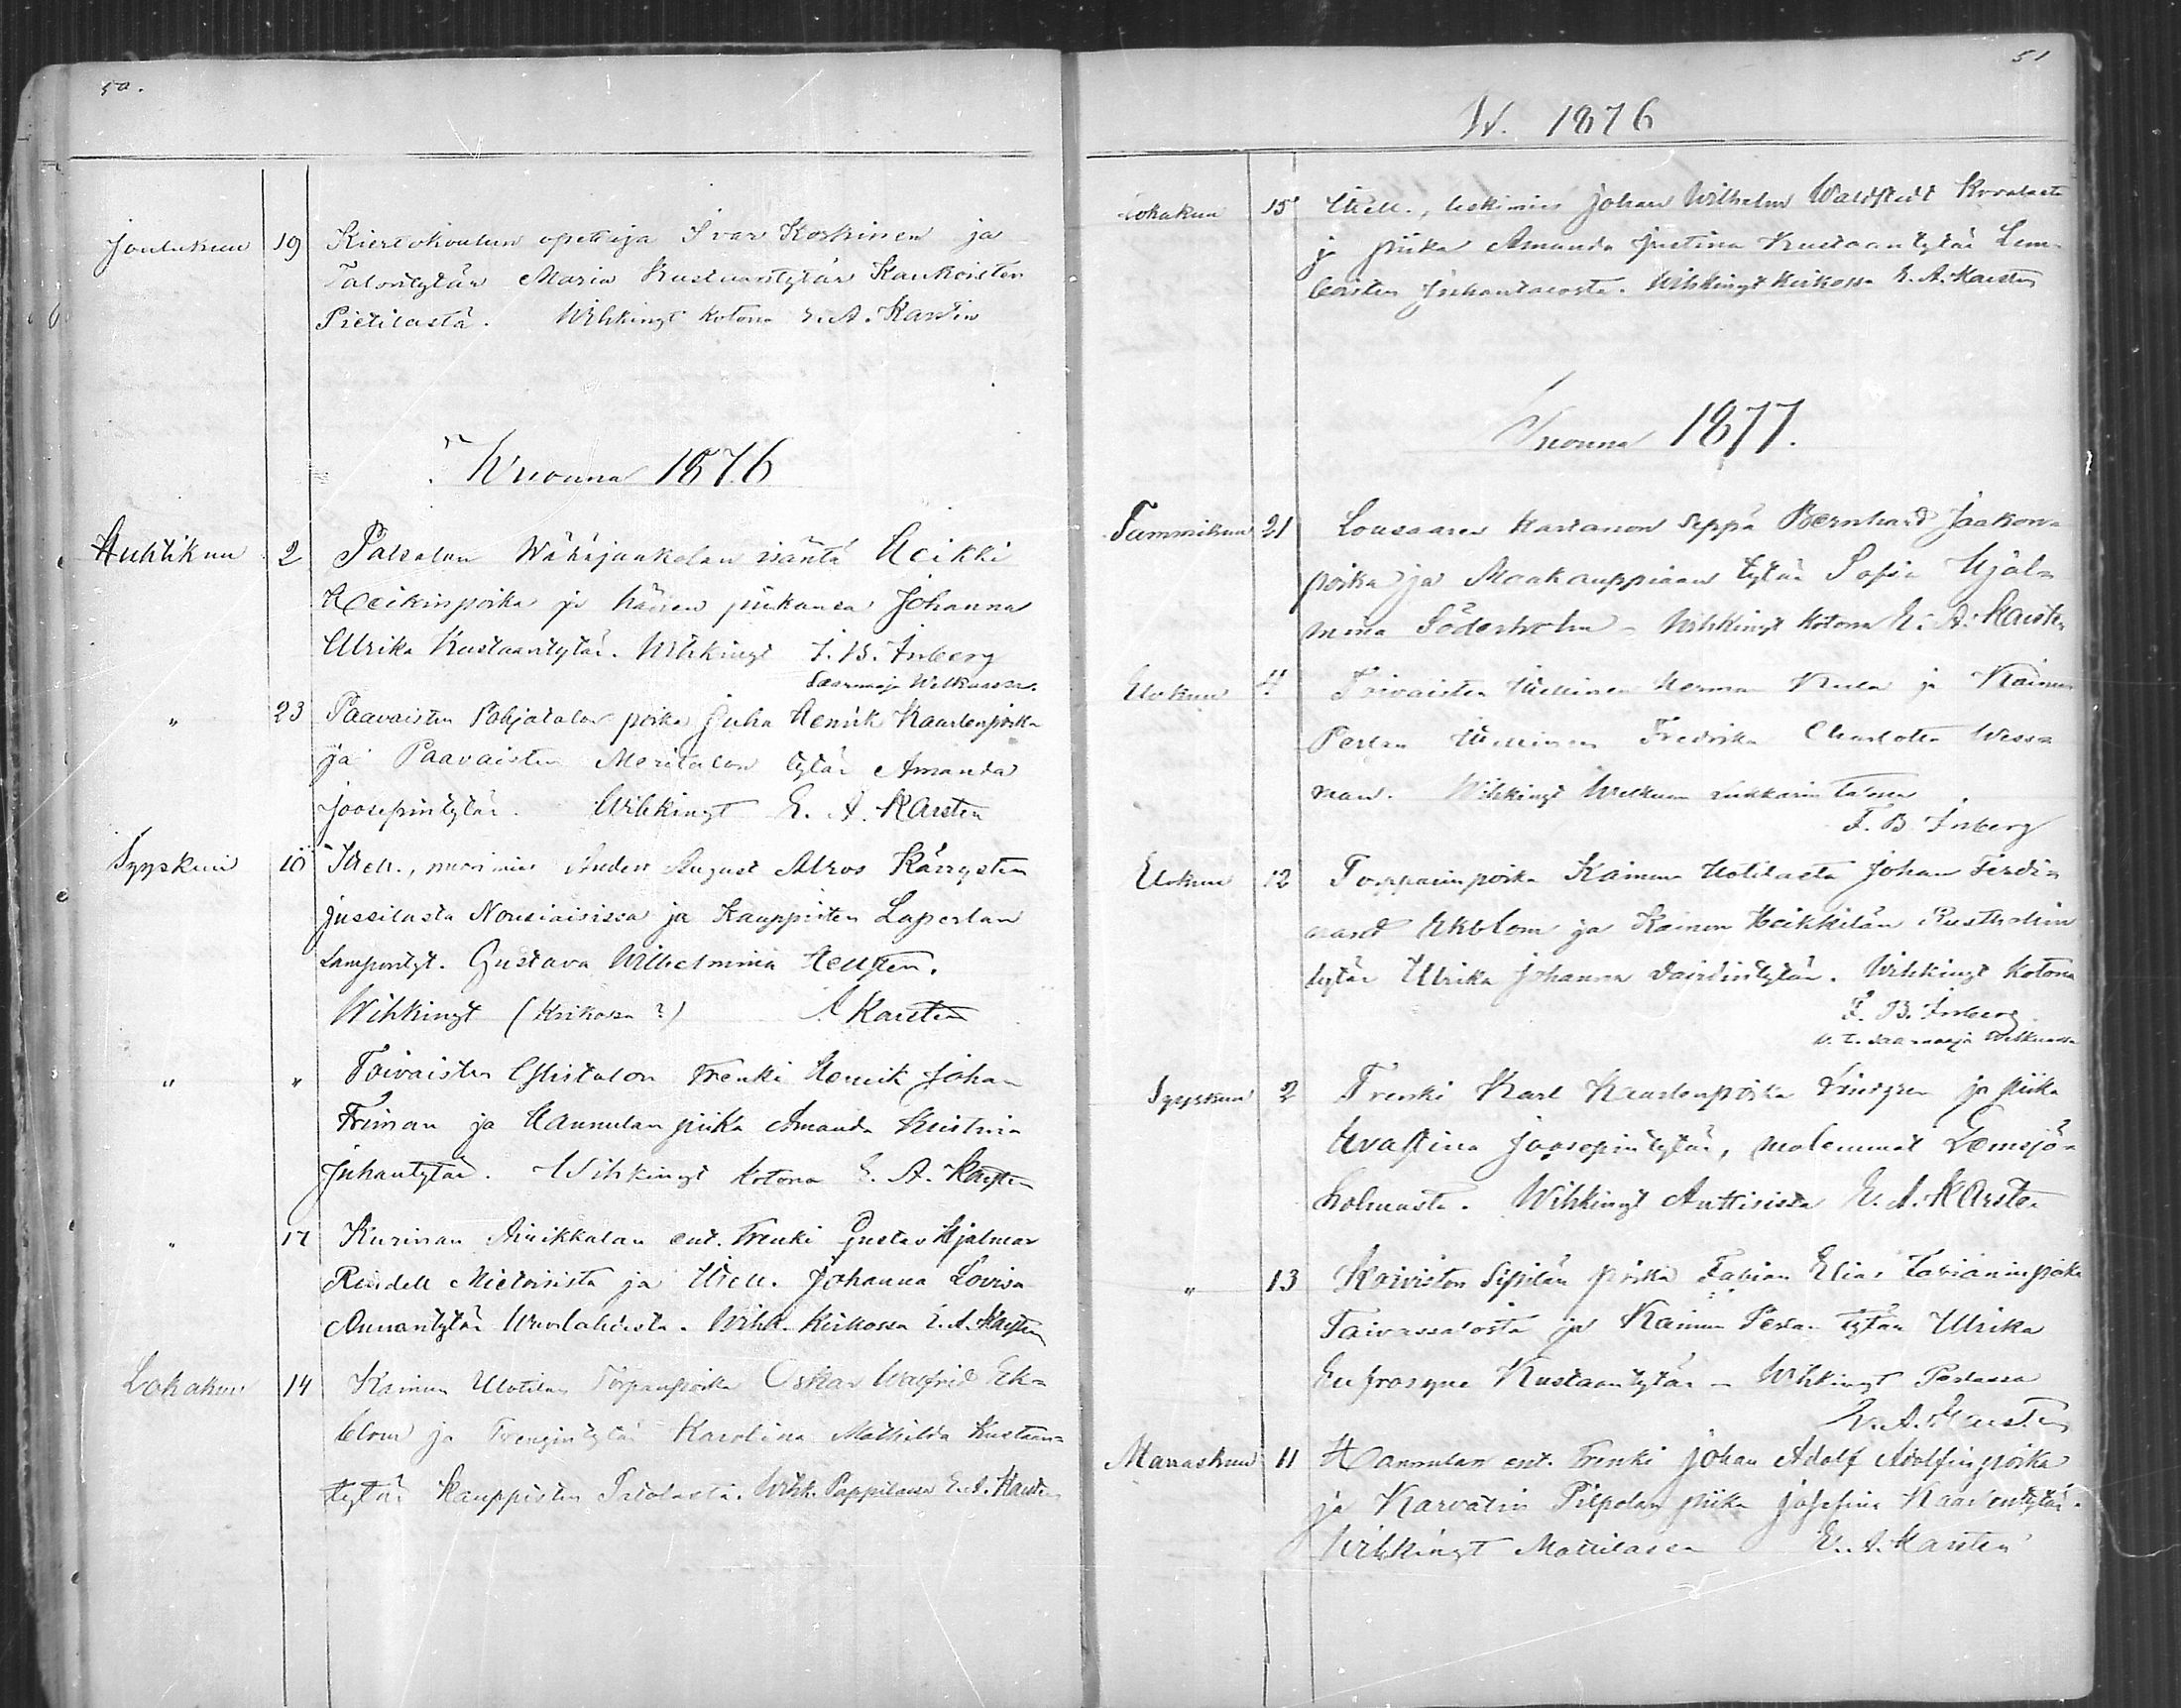 50.
Joulukuu 19 Kiertokoulun opettaja Ivar Koskinen ja
Talontytär Maria Kustaantytär Kaukoisten
Pietilästä. Wihkinyt kotona E. A. Karstén
Wuonna 1876
Huhtikuu 2 Palsalan Wähäjaakolan isäntä Heikki
Heikinpoika ja hänen piikansa Johanna
Ulrika Kustaantytär. Wihkinyt F. B. Inberg
Saarnaaja Welkuassa.
" 23 Paavaisten Pohjatalon poika Juha Henrik Kaarlenpoika
ja Paavaisten Meritalon tytär Amanda
Joosepintytär. Wihkinyt E. A. Karsten
Syyskuu 10 Itell., muurimies Anders August Alros Kärrysten
Jussilasta Nousiaisissa ja Kauppisten Laperlan
Lampurityt. Gustava Wilhelmina Hellsten.
Wihkinyt (kirkossa?) A Karsten
" " Toivaisten Ylistalon Trenki Henrik Johan
Friman ja Hannulan piika Amanda Kristina
Juhantytär. Wihkinyt kotona E. A. Karsten
" 17 Kurinan Ainikkalan ent. Trenki Gustav Hjalmar
Rindell Mietoisista ja Itell. Johanna Lovisa
Annantytär Wuolahdesta. Wihk. Kirkossa E. A. Karsten
Lokakuu 14 Kaimun Uotilan Torpanpoika Oskar Walfrid Ek=
blom ja Trengintytär Karolina Mathilda Kustaan=
tytär Kauppisten Isotalosta. Wihk. Pappilassa E. A. Karsten
51
W. 1876
Lokakuu 15 Itsell., Johan Wilhelm Waldstedt
ja piika Amanda Justina Kustaantytär Lem=
Juhantalosta. Wihkinyt Kirkossa E. A. Karsten
Wuonna 1877.
Tammikuu 21 Lousaaren Kartanon Seppä Bernhard Jaakon=
poika ja Maakauppiaan tytär Sofia Hjäl=
mina Söderholm – Wihkinyt kotona E. A. Karsten
Elokuu 4 Toivaisten Itsellinen Herman ja Kaimun
Perlan Itsellinen Fredrika Charlotta Wess=
man. Wihkinyt Welkuan lukkarin talossa
F. B. Inberg
Elokuu 12 Torpparinpoika Kaimun Uotilasta Johan Ferdi=
nand Ekblom ja Kaimon Heikkilän Rusthollin
tytär Ulrika Johanna Davidintytär. Wihkinyt kotona
F. B. Inberg
v. t. saarnaaja Welkuassa
Syyskuu 2 Trenki Karl Kaarlenpoika Lindgren ja piika
Evastina Joosepintytär, molemmat Lemsjö=
holmasta. Wihkinyt Anttisissa E. A. Karsten
" 13 Koiviston Sipilän poika Fabian Elias Fabianinpoika
Taivassalosta ja Kaimun Perlan tytär Ulrika
Eufrosyne Kustaantytär – Wihkinyt Perlassa
E. A. Karsten
Marraskuu 11 Hannulan ent. Trenki Johan Adolf Adolfinpoika
ja Karvatin Pilpolan piika Josefina Kaarlentytär.
Wihkinyt Mattilassa E. A. Karsten